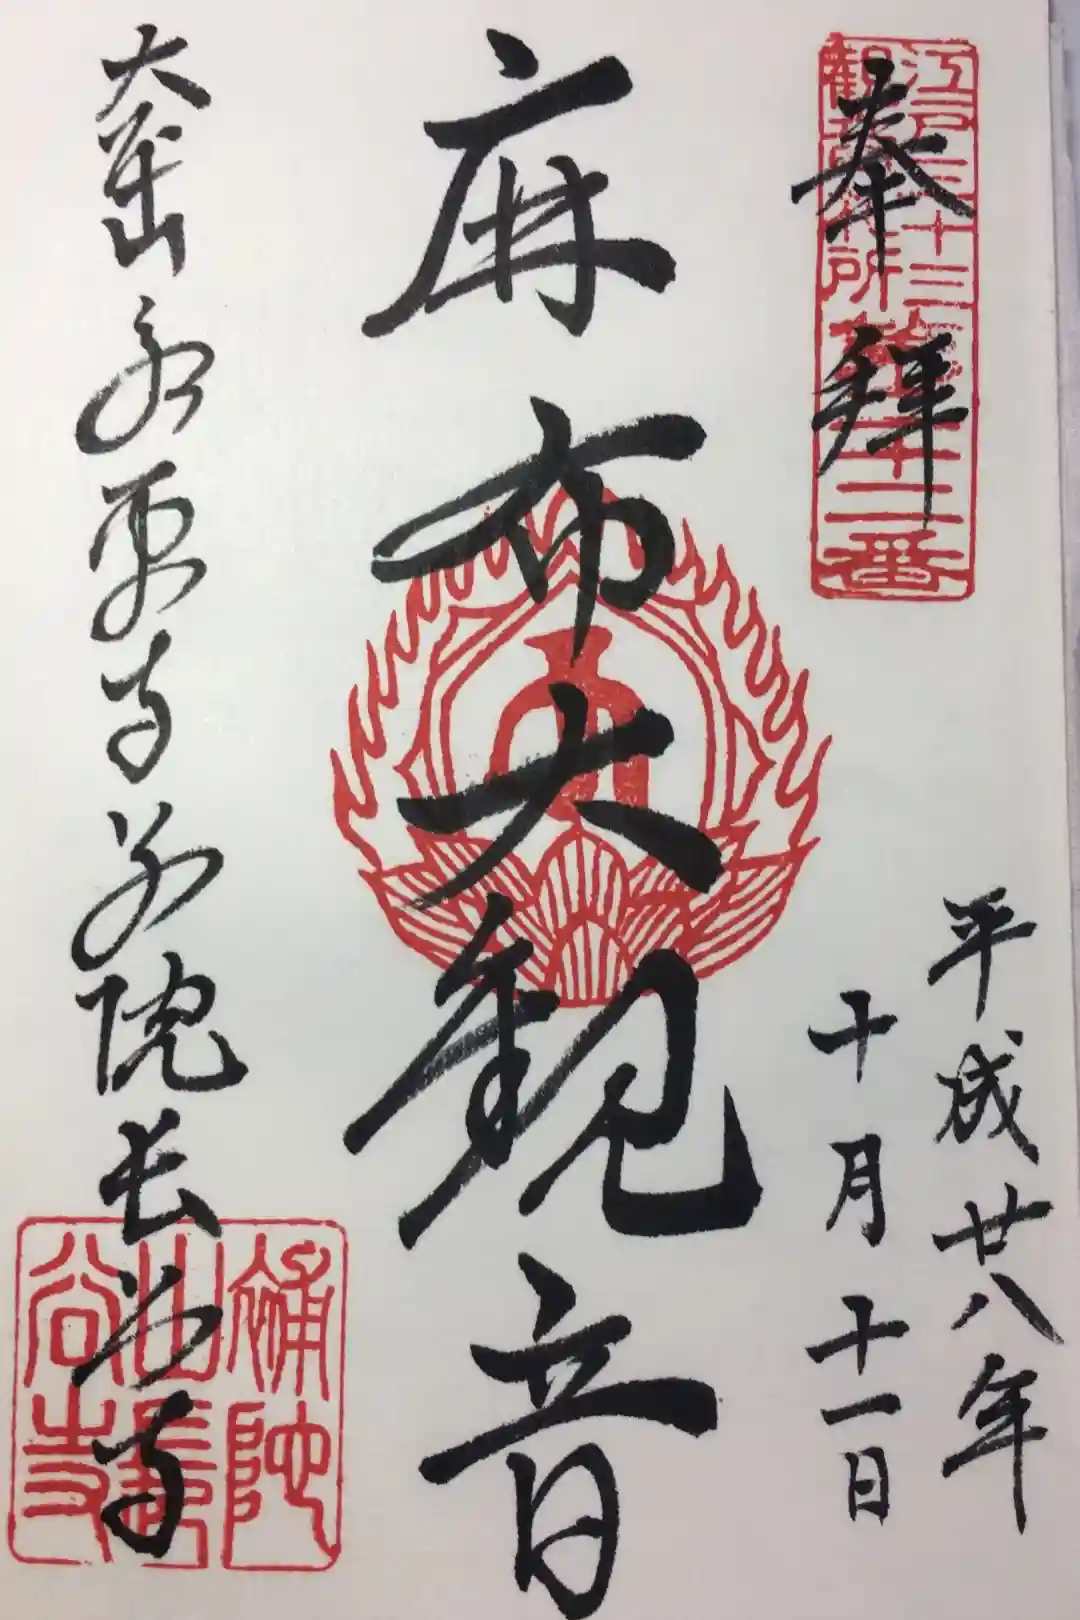 奉拝
江戸三十三
観音札所
第二十二番
平成廿八年
十月十一日
麻布大観音
大本山永平寺別院長谷寺
補陀
山長
谷寺